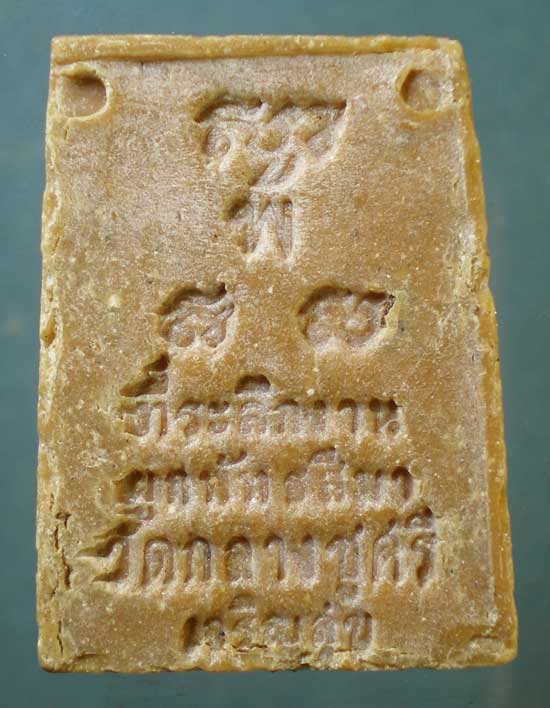 ที่ระลึกงาน
ผูกพัทธสีมา
วัดกลางชูศรี
เจริญสุข